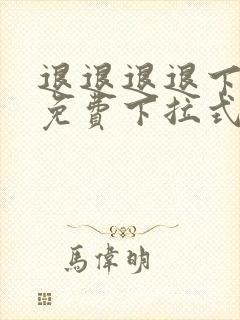 退退退退下
免费下拉式
馬偉明